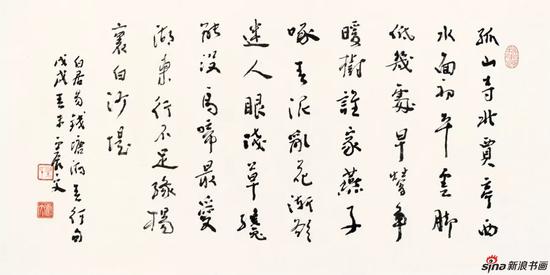 孤山寺北賈亭西
水面初平雲脚
低幾處早鶯爭
暖樹誰家燕子
啄春泥亂花漸欲
迷人眼淺草纔
能没馬蹄最愛
湖東行不足綠楊
裏白沙堤
白居易錢塘湖春行句
戊戌春
sina 新浪书画